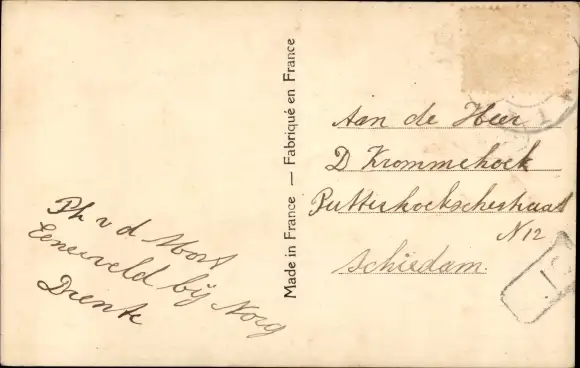 Ph v d Most
Eeneveld bij Norg
Drente
Made in France — Fabriqué en France
Aan de Heer
D Krommehoek
Putterhoekschestraat
N 12
Schiedam.